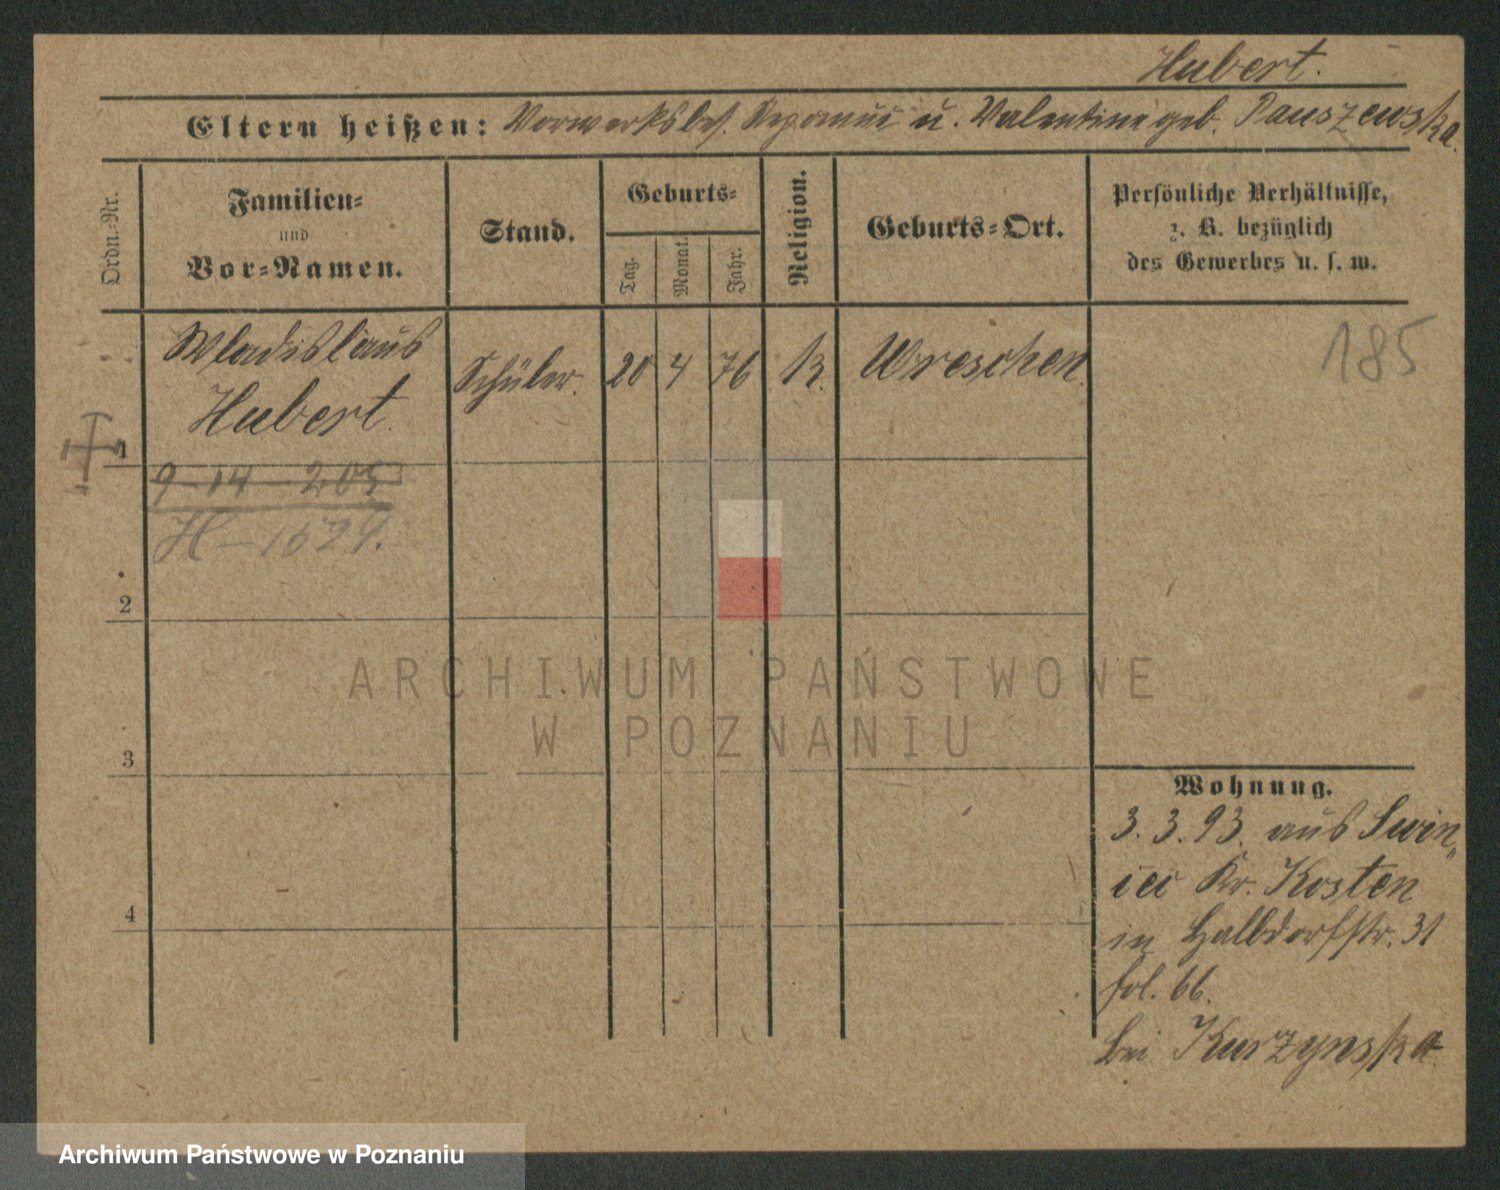 Hubert.
Eltern heißen: Vorwerksbes. u. Valentine geb. Pauszewska.
Ordn.-Nr.
Familien-
und
Vor-Namen.
Stand.
Geburts-
Tag.
Monat.
Jahr.
Religion.
Geburts-Ort.
Persönliche Verhältnisse,
z. B. bezüglich
des Gewerbes u. s. w.
185
1
Wladislaus
Hubert.
Schüler.
20
4
76
k.
Wreschen.
9-14-205
H-1629.
2
ARCHIWUM PAŃSTWOWE
W POZNANIU
3
Wohnung.
3. 3. 93. aus Swin-
iec Kr. Kosten
in Halbdorfstr. 31
fol. 66.
bei Kurzynska
4
Archiwum Państwowe w Poznaniu